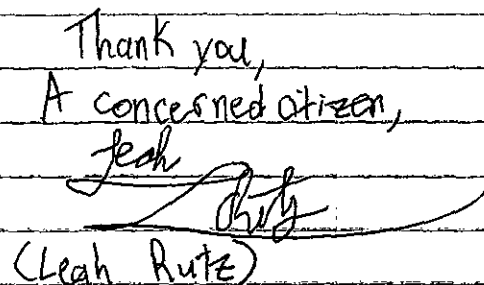 Thank you,
A concerned citizen,
Leah
Rutz
(Leah Rutz)